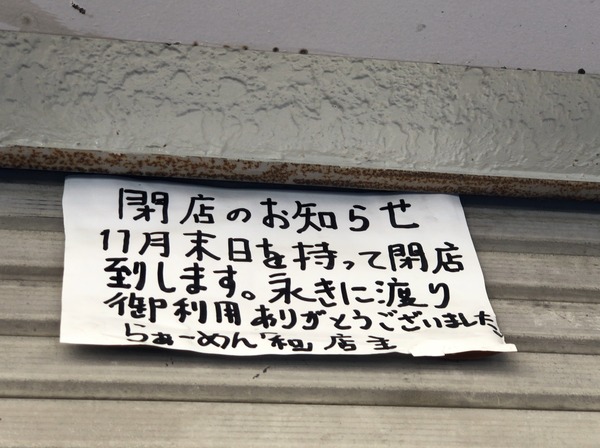 閉店のお知らせ
11月末日を持って閉店
到します。永きに渡り
御利用ありがとうございました。
らぁーめん「和」店主